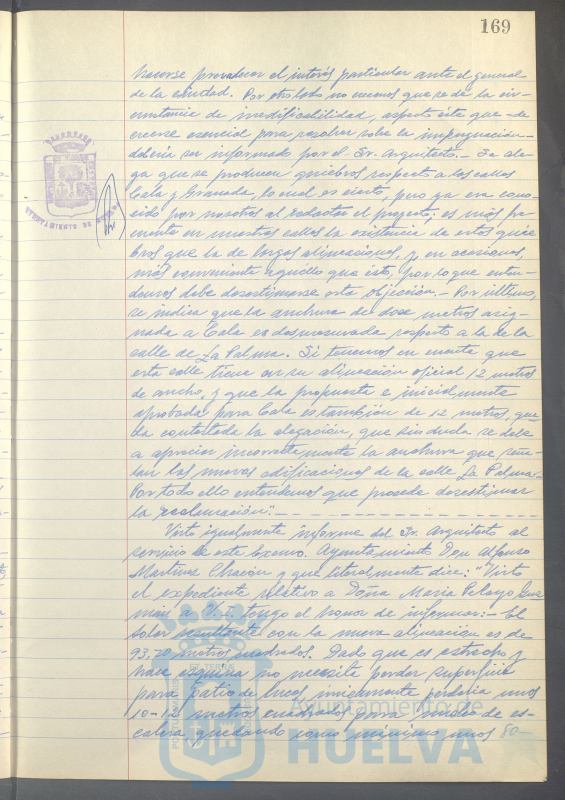 169
hacerse prevalecer el interés particular ante el general
de la ciudad. Por otro lado no creemos que se dé la cir-
cunstancia de inedificabilidad, aspecto éste que -de
ercerse esencial para resolver sobre la impugnación-
debería ser informado por el Sr. Arquitecto.- Se ale-
ga que se producen quiebros respecto a las calles
Cala y Granada, lo cual es cierto, pero ya era cono-
cido por nosotros al redactar el proyecto; es más fre-
cuente en nuestras calles la existencia de estos quie-
bros que la de largas alineaciones, y, en ocasiones,
más conveniente aquéllo que ésto, por lo que enten-
demos debe desestimarse esta objeción.- Por último,
se indica que la anchura de doce metros asig-
nada a Cala es desmesurada respecto a la de la
calle de La Palma. Si tenemos en cuenta que
esta calle tiene en su alineación oficial 12 metros
de ancho, y que la propuesta e inicialmente
aprobada para Cala es también de 12 metros, que-
da contestada la alegación, que sin duda se debe
a apreciar incorrectamente la anchura que seña-
lan las nuevas edificaciones de la calle La Palma.-
Por todo ello entendemos que procede desestimar
la reclamación".-
Visto igualmente informe del Sr. Arquitecto al
servicio de este Excmo. Ayuntamiento Don Alfonso
Martínez Chacón y que literalmente dice: "Visto
el expediente relativo a Doña María Pelayo
a V... tengo el honor de informar:- El
solar resultante con la nueva alineación es de
93,20 metros cuadrados. Dado que es estrecho y
hace esquina no necesita perder superficie
para patio de luces, únicamente perdería unos
10-12 metros cuadrados para núcleo de es-
calera, quedando como mínimo unos 80-
AYUNTAMIENTO DE
Ayuntamiento de
HUELVA